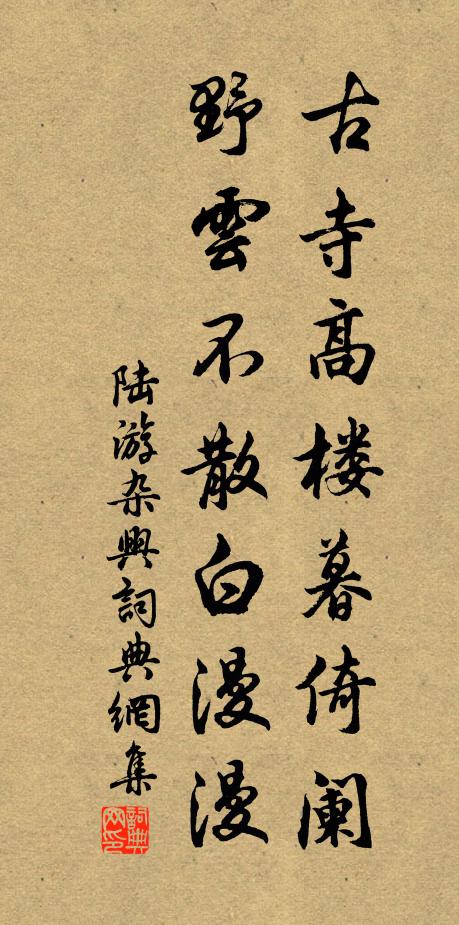 古寺高楼暮倚阑
野雲不散白漫漫
陆游杂興詞典網集
詞典網印